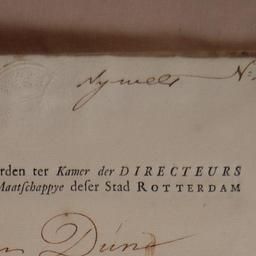 Nymels N:
rden ter Kamer der DIRECTEURS
Maatſchappye deſer Stad ROTTERDAM
Dúne